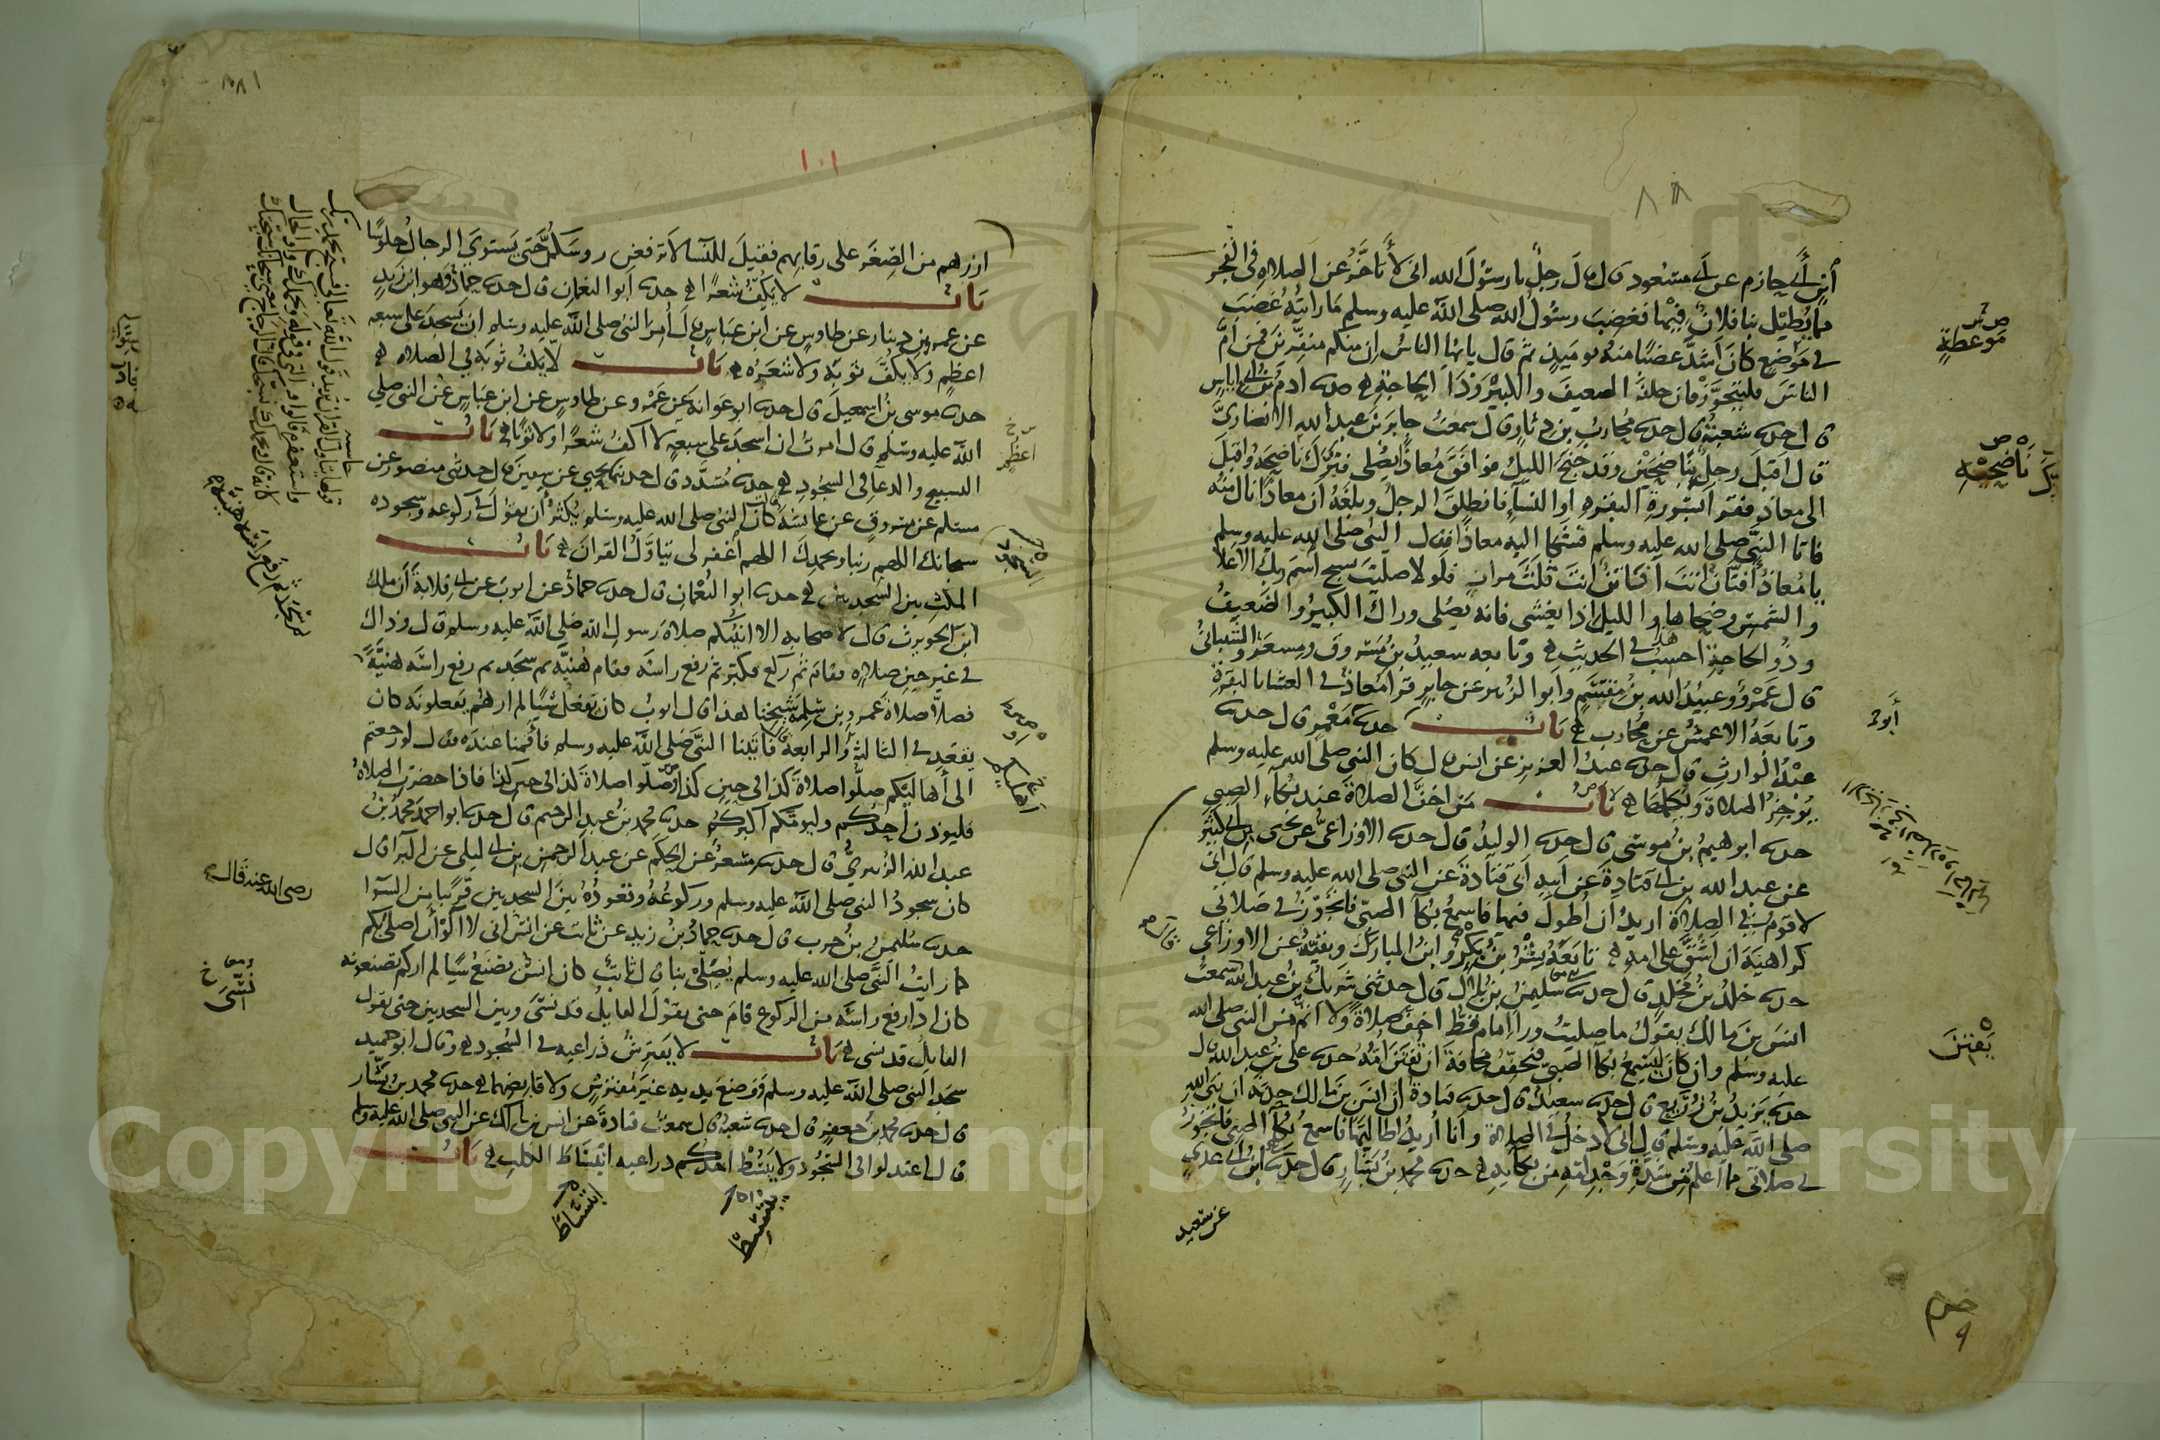 ٨٨
ابن أبي حازم عن أبي مسعود قال قال رجل يا رسول الله اني لأتأخر عن الصلاة في الفجر
مما يطيل بنا فلان فيها فغضب رسول الله صلى الله عليه وسلم ما رأيته غضب
في موضع كان أشد غضبا منه يومئذ ثم قال يا يها الناس إن منكم منفرين فمن أم
الناس فليتجوز فإن خلفه الضعيف والكبير وذا الحاجة حدثنا آدم بن أبي إياس
قال حدثنا شعبة قال حدثنا محارب بن دثار قال سمعت جابر بن عبد الله الانصاري
قال أقبل رجل بناضحين وقد جنح الليل فوافق معاذا يصلي فترك ناضحه وأقبل
إلى معاذ فقرأ بسورة البقرة او النساء فانطلق الرجل وبلغه أن معاذا نال منه
فاتا النبي صلى الله عليه وسلم فشكا إليه معاذا فقال النبي صلى الله عليه وسلم
يا معاذ أفتان أنت أفاتن أنت ثلث مرات فلولا صليت بسبح اسم ربك الأعلا
والشمس وضحاها والليل إذا يغشى فانه يصلي وراك الكبير والضعيف
وذو الحاجة أحسب هذا في الحديث وتابعه سعيد بن مسروق ومسعر والشيباني
قال عمرو وعبيد الله بن مقسم وأبو الزبير عن جابر قرأ معاذ في العشاء بالبقرة
وتابعه الاعمش عن محارب باب حدثنا أبو معمر قال حدثنا
عبد الوارث قال حدثنا عبد العزيز عن انس قال كان النبي صلى الله عليه وسلم
يوجز الصلاة ويكملها باب من اخف الصلاة عند بكاء الصبي
حدثنا ابراهيم بن موسى قال حدثنا الوليد قال حدثنا الاوزاعي عن يحيى بن أبي كثير
عن عبد الله بن أبي قتادة عن أبيه أبي قتادة عن النبي صلى الله عليه وسلم قال إني
لاقوم في الصلاة اريد أن أطول فيها فاسمع بكاء الصبي فاتجوز في صلاتي
كراهية ان اشق على امه تابعه بشر بن بكر وابن المبارك وبقية عن الاوزاعي
حدثنا خالد بن مخلد قال حدثنا سليمن بن بلال قال حدثني شريك بن عبد الله سمعت
انس بن مالك يقول ما صليت وراء امام قط أخف صلاة ولا أتم من النبي صلى الله
عليه وسلم وان كان ليسمع بكاء الصبي فيخفف مخافة أن تفتن امه حدثنا علي بن عبد الله قال
حدثنا يزيد بن زريع قال حدثنا سعيد قال حدثنا قتادة أن انس بن مالك حدثه أن نبي الله
صلى الله عليه وسلم قال إني لادخل في الصلاة وأنا أريد اطالتها فاسمع بكاء الصبي فاتجوز
في صلاتي مما أعلم من شدة وجد أمه من بكائه حدثنا محمد بن بشار قال حدثنا ابن أبي عدي
عن سعيد
موعظة
ناضحيه
أبو
تفتن
١٠١
ازرهم من الصغر على رقابهم فقيل للنساء لا ترفعن رؤسكن حتى يستوي الرجال جلوسا
باب لا يكف شعرا حدثنا أبو النعمان قال حدثنا حماد وهو ابن زيد
عن عمرو بن دينار عن طاوس عن ابن عباس قال أمر النبي صلى الله عليه وسلم أن يسجد على سبعة
اعظم ولا يكف ثوبه ولا شعره باب لا يكف ثوبه في الصلاة
حدثنا موسى بن اسمعيل قال حدثنا ابو عوانة عن عمرو عن طاوس عن ابن عباس عن النبي صلى
الله عليه وسلم قال امرت ان اسجد على سبعة لا اكف شعرا ولا ثوبا باب
التسبيح والدعاء في السجود حدثنا مسدد قال حدثنا يحيى عن سفين قال حدثني منصور عن
مسلم عن مسروق عن عائشة قالت كان النبي صلى الله عليه وسلم يكثر أن يقول في ركوعه وسجوده
سبحانك اللهم ربنا وبحمدك اللهم اغفر لي يتاول القران باب
المكث بين السجدتين حدثنا ابو النعمان قال حدثنا حماد عن ايوب عن أبي قلابة أن ملك
ابن الحويرث قال لاصحابه الا انبئكم صلاة رسول الله صلى الله عليه وسلم قال وذاك
في غير حين صلاة فقام ثم ركع فكبر ثم رفع راسه فقام هنية ثم سجد ثم رفع راسه هنية
فصلا صلاة عمرو بن سلمة شيخنا هذا قال ايوب كان يفعل شيا لم ارهم يفعلونه كان
يقعد في الثالثة والرابعة فاتينا النبي صلى الله عليه وسلم فأقمنا عنده فقال لو رجعتم
الى أهاليكم صلوا صلاة كذا في حين كذا وصلوا صلاة كذا في حين كذا فاذا حضرت الصلاة
فليوذن احدكم وليومكم اكبركم حدثنا محمد بن عبد الرحيم قال حدثنا ابو احمد محمد بن
عبد الله الزبيري قال حدثنا مسعر عن الحكم عن عبد الرحمن بن أبي ليلى عن البرا قال
كان سجود النبي صلى الله عليه وسلم وركوعه وقعوده بين السجدتين قريبا من السوا
حدثنا سليمن بن حرب قال حدثنا حماد بن زيد عن ثابت عن انس اني لا آلو أن اصلي بكم
كما رايت النبي صلى الله عليه وسلم يصلي بنا قال ثابت كان انس يصنع شيا لم اركم تصنعونه
كان اذا رفع راسه من الركوع قام حتى يقول القايل قد نسي وبين السجدتين حتى يقول
القايل قد نسي باب لا يفترش ذراعيه في السجود وقال ابو حميد
سجد النبي صلى الله عليه وسلم ووضع يديه غير مفترش ولا قابضهما حدثنا محمد بن بشار
قال حدثنا محمد بن جعفر قال حدثنا شعبة قال سمعت قتادة عن انس بن مالك عن النبي صلى الله عليه وسلم
قال اعتدلوا في السجود ولا يبسط احدكم ذراعيه انبساط الكلب باب
ابتساط
يبتسط
أعظم
السجود
رضى الله عنه قال
نسي
Copyright © King Saud University